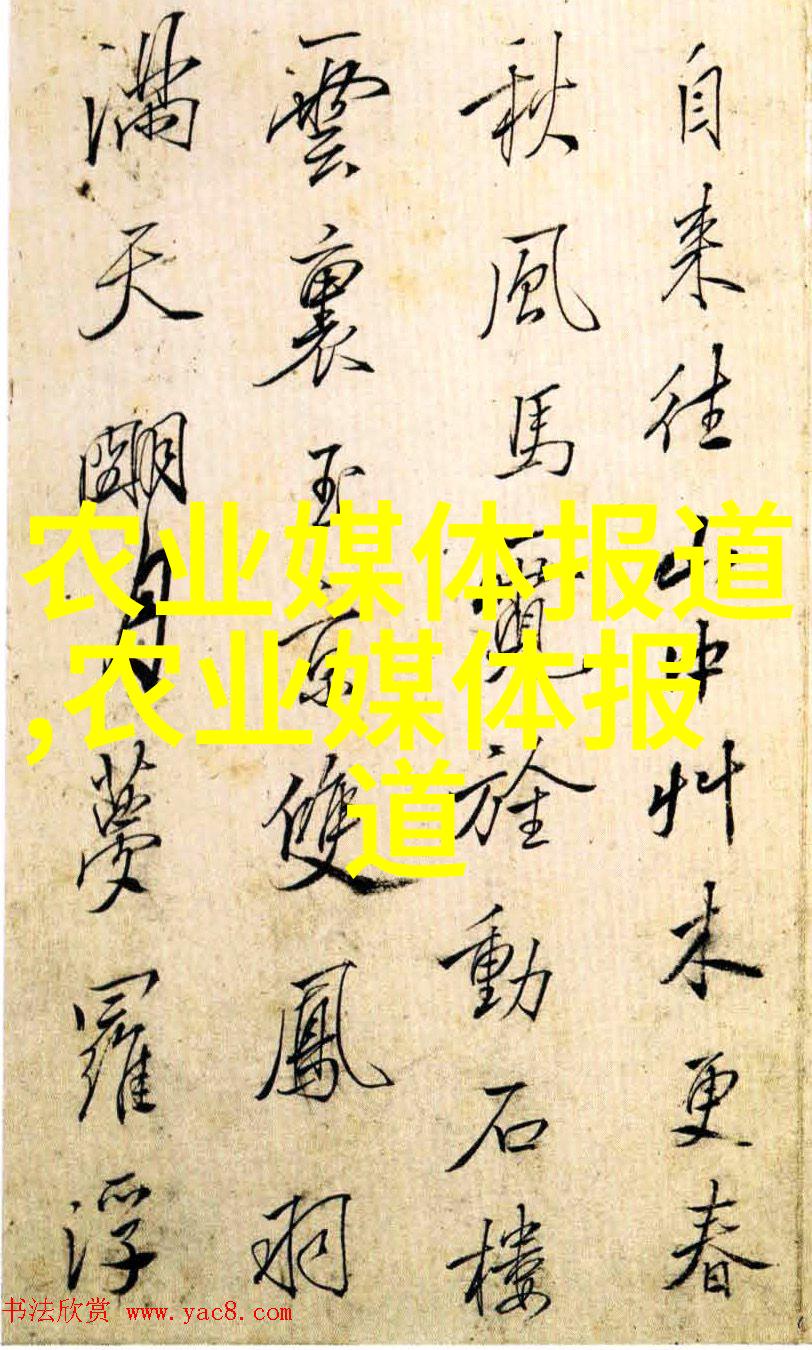 自来往山中艸木更春
秋風馬霓旌動石樓
雲裏玉京雙鳳羽
滿天朙月夢羅浮
农业媒体报道
,农业媒体报
道
书法欣赏 www.yac8.com